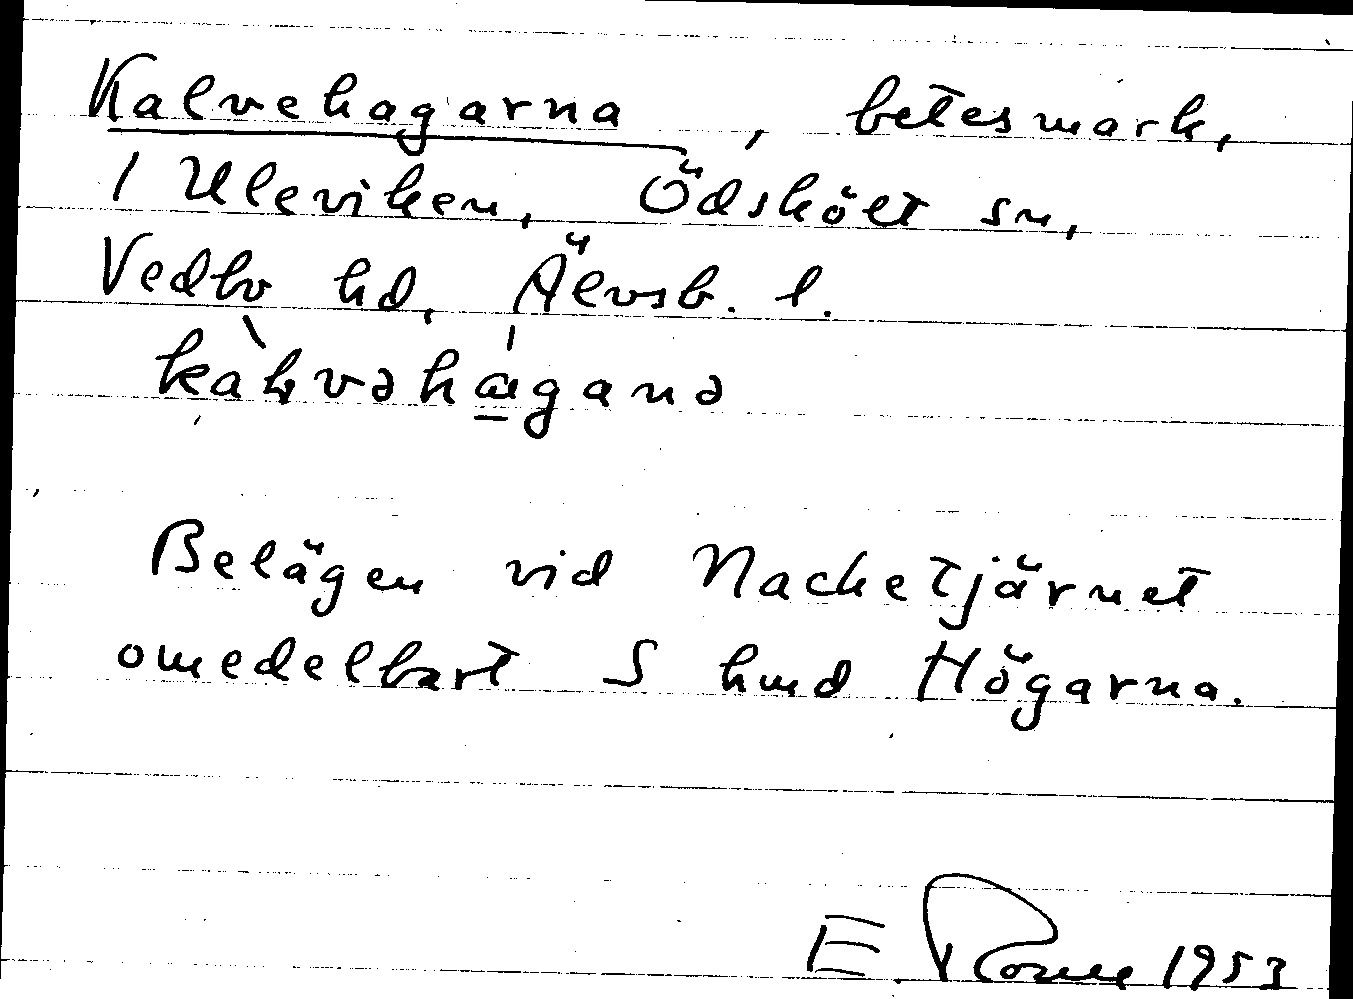 Kalvehagarna, betesmark,
1 Uleviken, Ödskölt sn,
Vedbo hd, Älvsb. l.
Belägen vid Nacketjärnet
omedelbart S hmd Högarna.
E. 1953